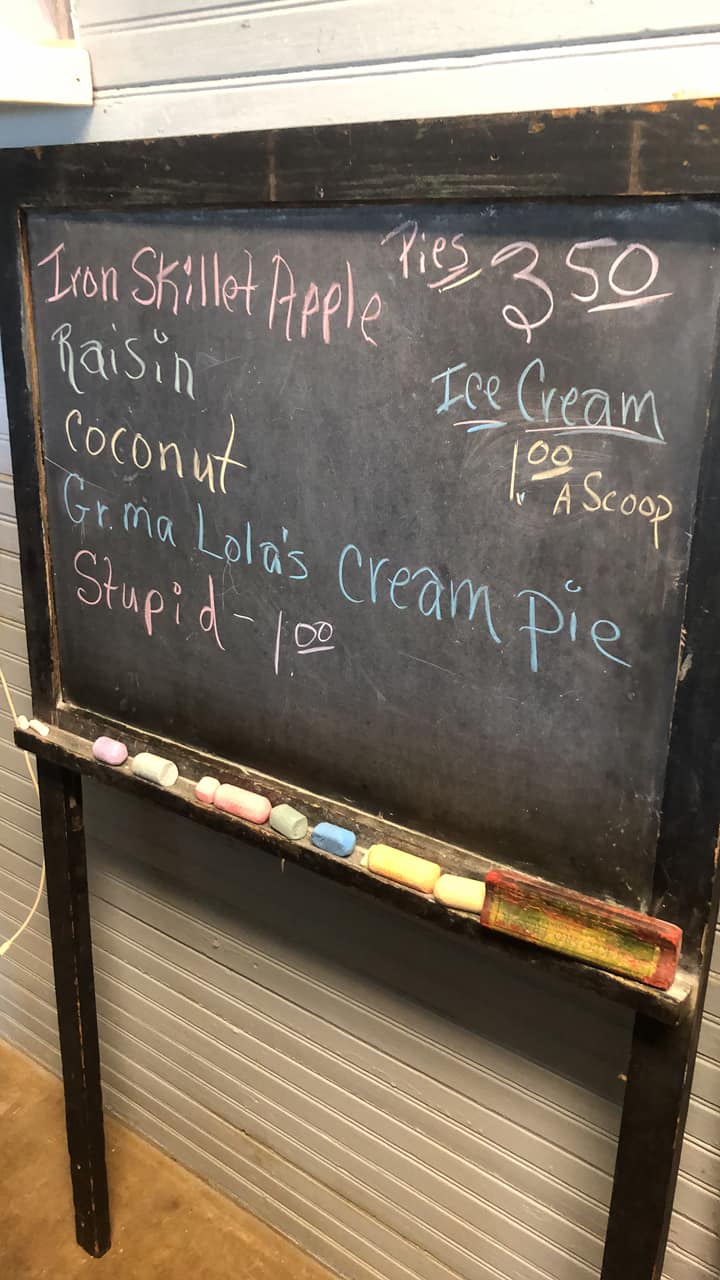 Iron Skillet Apple
Raisin
Coconut
Gr.ma Lola's Cream Pie
Stupid - 1 00
Pies 3 50
Ice Cream
1 00
A Scoop